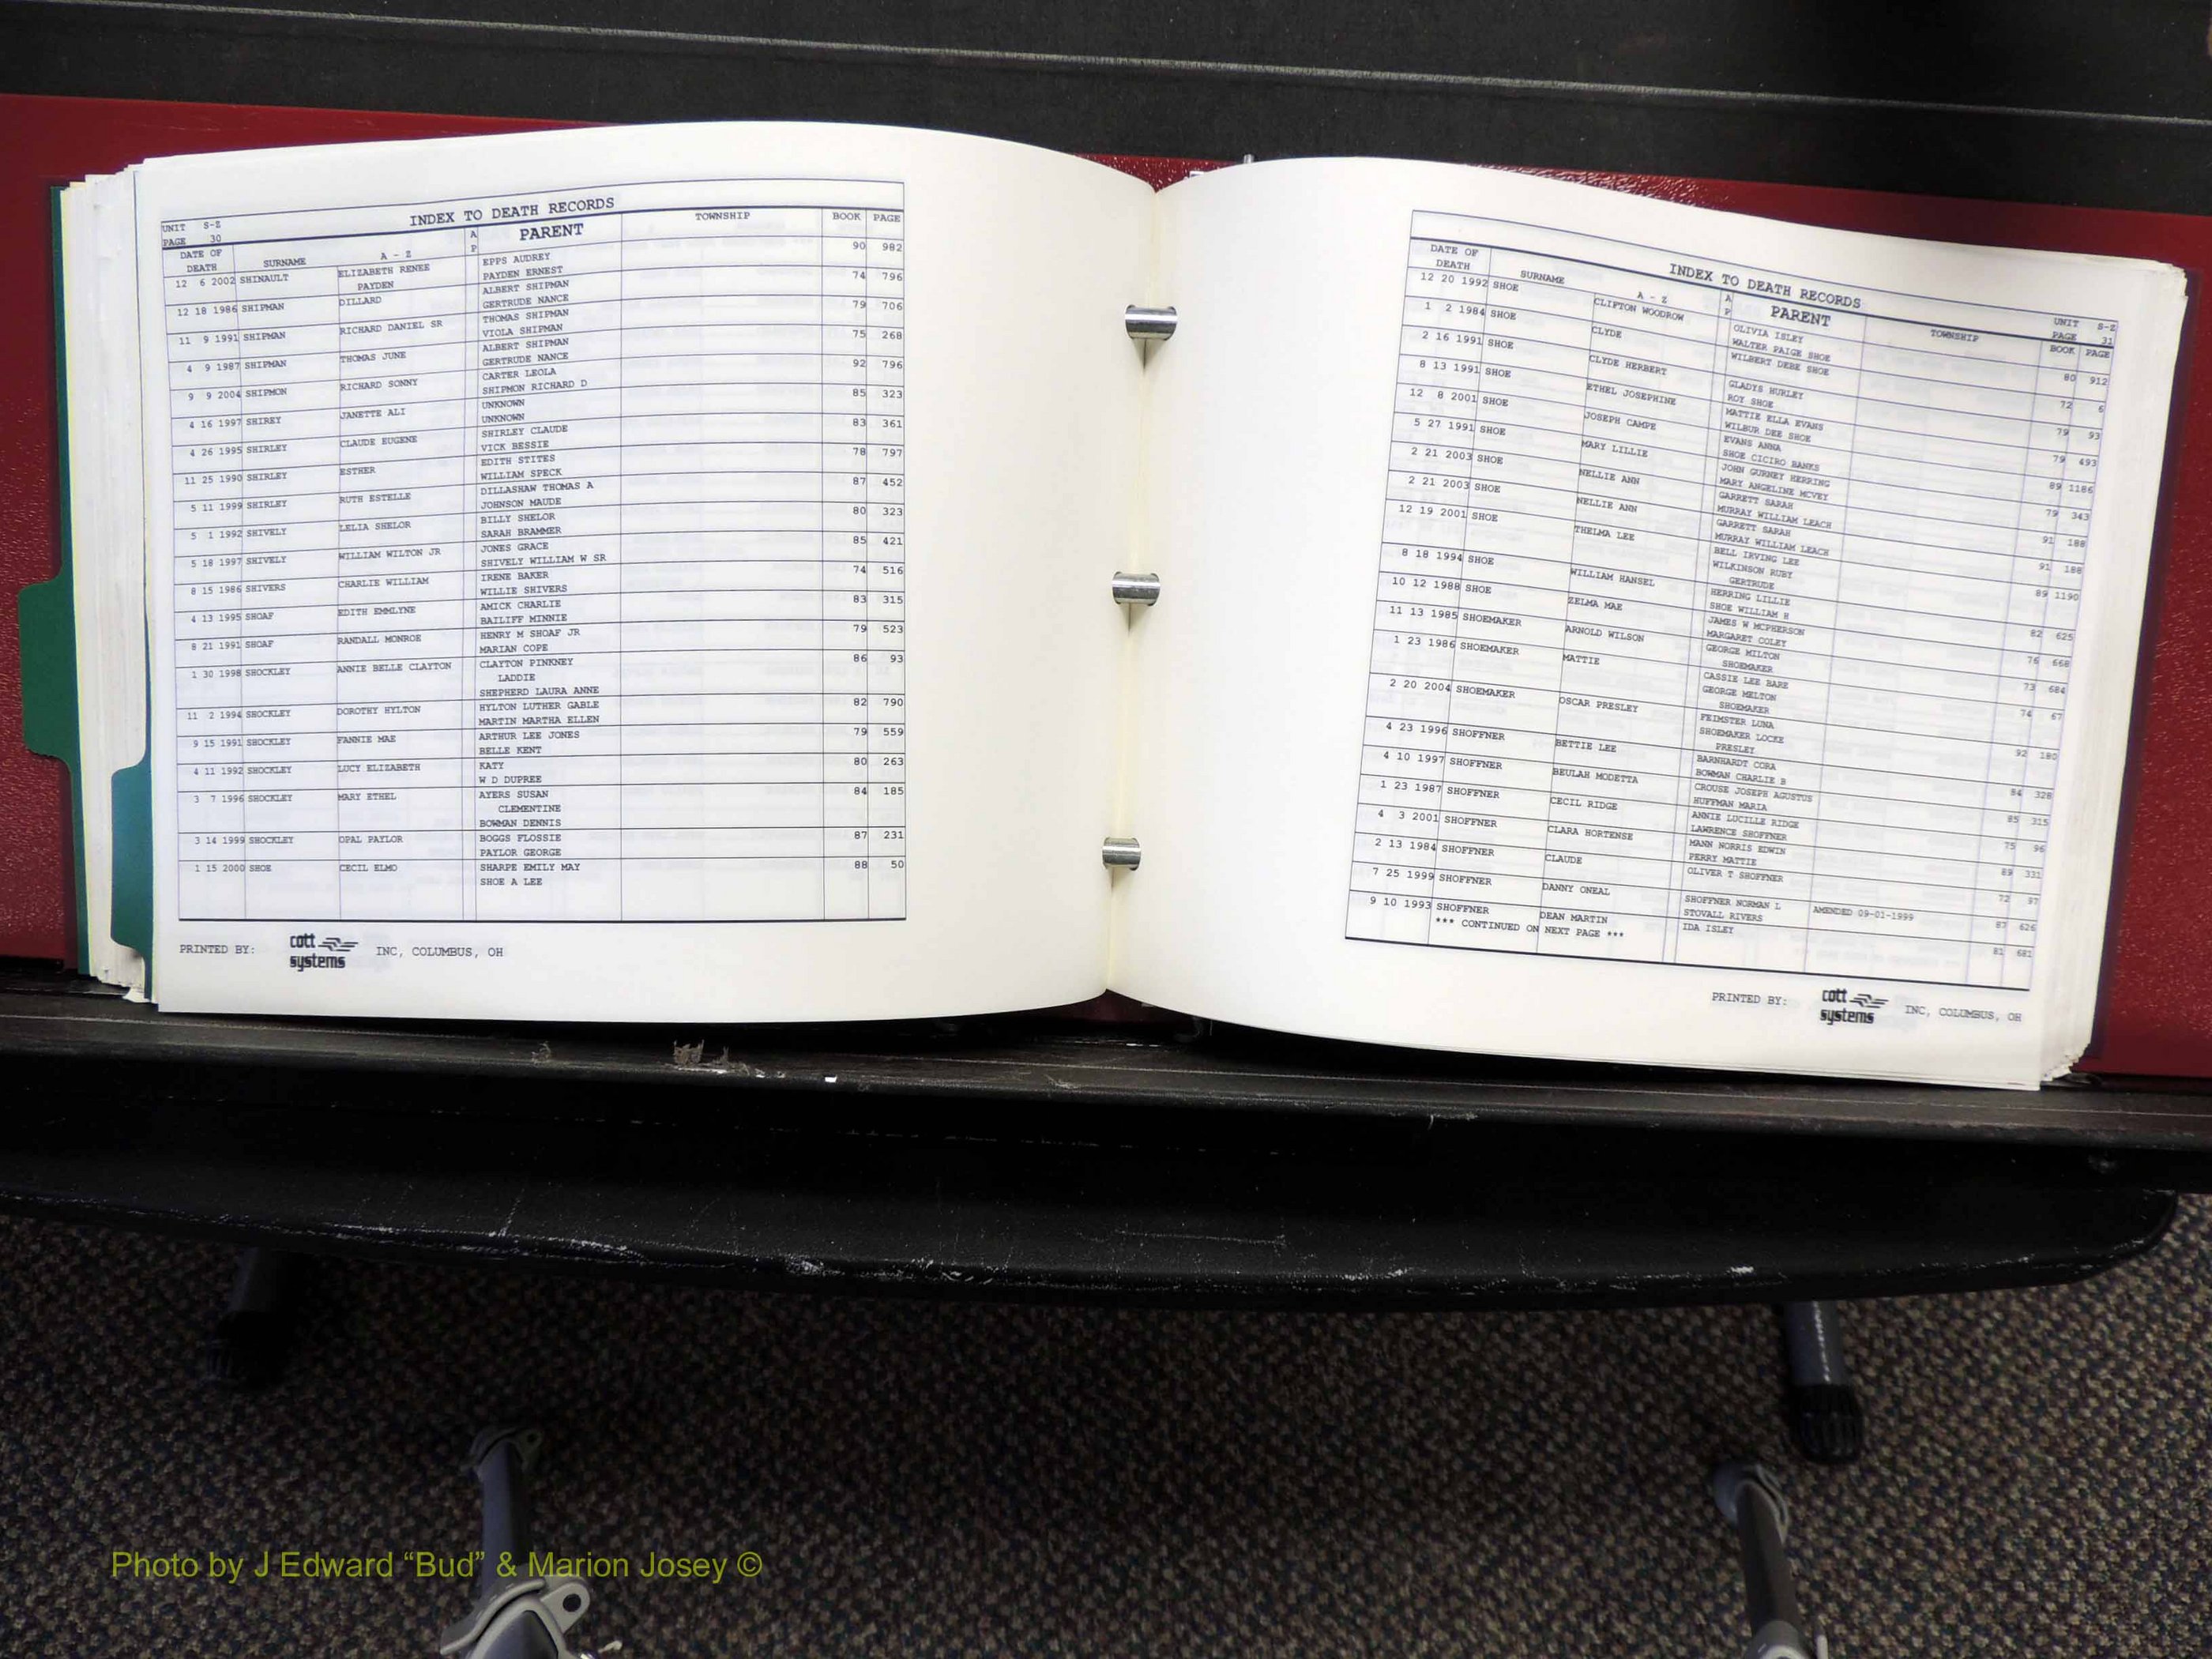 UNIT S-Z
PAGE 30
INDEX TO DEATH RECORDS
DATE OF DEATH SURNAME A - Z A P PARENT TOWNSHIP BOOK PAGE
12 6 2002 SHINAULT ELIZABETH RENEE EPPS AUDREY 90 982
PAYDEN PAYDEN ERNEST
12 18 1986 SHIPMAN DILLARD ALBERT SHIPMAN 74 796
GERTRUDE NANCE
11 9 1991 SHIPMAN RICHARD DANIEL SR THOMAS SHIPMAN 79 706
VIOLA SHIPMAN
4 9 1987 SHIPMAN THOMAS JUNE ALBERT SHIPMAN 75 268
GERTRUDE NANCE
9 9 2004 SHIPMON RICHARD SONNY CARTER LEOLA 92 796
SHIPMON RICHARD D
4 16 1997 SHIREY JANETTE ALI UNKNOWN 85 323
UNKNOWN
4 26 1995 SHIRLEY CLAUDE EUGENE SHIRLEY CLAUDE 83 361
VICK BESSIE
11 25 1990 SHIRLEY ESTHER EDITH STITES 78 797
WILLIAM SPECK
5 11 1999 SHIRLEY RUTH ESTELLE DILLASHAW THOMAS A 87 452
JOHNSON MAUDE
5 1 1992 SHIVELY LELIA SHELOR BILLY SHELOR 80 323
SARAH BRAMMER
5 18 1997 SHIVELY WILLIAM WILTON JR JONES GRACE 85 421
SHIVELY WILLIAM W SR
8 15 1986 SHIVERS CHARLIE WILLIAM IRENE BAKER 74 516
WILLIE SHIVERS
4 13 1995 SHOAF EDITH EMMLYNE AMICK CHARLIE 83 315
BAILIFF MINNIE
8 21 1991 SHOAF RANDALL MONROE HENRY M SHOAF JR 79 523
MARIAN COPE
1 30 1998 SHOCKLEY ANNIE BELLE CLAYTON CLAYTON PINKNEY 86 93
LADDIE
SHEPHERD LAURA ANNE
11 2 1994 SHOCKLEY DOROTHY HYLTON HYLTON LUTHER GABLE 82 790
MARTIN MARTHA ELLEN
9 15 1991 SHOCKLEY FANNIE MAE ARTHUR LEE JONES 79 559
BELLE KENT
4 11 1992 SHOCKLEY LUCY ELIZABETH KATY 80 263
W D DUPREE
3 7 1996 SHOCKLEY MARY ETHEL AYERS SUSAN 84 185
CLEMENTINE
BOWMAN DENNIS
3 14 1999 SHOCKLEY OPAL PAYLOR BOGGS FLOSSIE 87 231
PAYLOR GEORGE
1 15 2000 SHOE CECIL ELMO SHARPE EMILY MAY 88 50
SHOE A LEE
PRINTED BY: cott systems INC, COLUMBUS, OH
INDEX TO DEATH RECORDS
UNIT S-Z
PAGE 31
DATE OF DEATH SURNAME A - Z A P PARENT TOWNSHIP BOOK PAGE
12 20 1992 SHOE CLIFTON WOODROW OLIVIA ISLEY 80 912
WALTER PAIGE SHOE
1 2 1984 SHOE CLYDE WILBERT DEBE SHOE 72 6
2 16 1991 SHOE CLYDE HERBERT GLADYS HURLEY 79 93
ROY SHOE
8 13 1991 SHOE ETHEL JOSEPHINE MATTIE ELLA EVANS 79 493
WILBUR DEE SHOE
12 8 2001 SHOE JOSEPH CAMPE EVANS ANNA 89 1186
SHOE CICIRO BANKS
5 27 1991 SHOE MARY LILLIE JOHN GURNEY HERRING 79 343
MARY ANGELINE MCVEY
2 21 2003 SHOE NELLIE ANN GARRETT SARAH 91 188
MURRAY WILLIAM LEACH
2 21 2003 SHOE NELLIE ANN GARRETT SARAH 91 188
MURRAY WILLIAM LEACH
12 19 2001 SHOE THELMA LEE BELL IRVING LEE 89 1190
WILKINSON RUBY
GERTRUDE
8 18 1994 SHOE WILLIAM HANSEL HERRING LILLIE 82 625
SHOE WILLIAM H
10 12 1988 SHOE ZELMA MAE JAMES W MCPHERSON 76 668
MARGARET COLEY
11 13 1985 SHOEMAKER ARNOLD WILSON GEORGE MILTON 73 684
SHOEMAKER
1 23 1986 SHOEMAKER MATTIE CASSIE LEE BARE 74 67
GEORGE MELTON
SHOEMAKER
2 20 2004 SHOEMAKER OSCAR PRESLEY FEIMSTER LUNA 92 180
SHOEMAKER LOCKE
PRESLEY
4 23 1996 SHOFFNER BETTIE LEE BARNHARDT CORA 84 328
BOWMAN CHARLIE B
4 10 1997 SHOFFNER BEULAH MODETTA CROUSE JOSEPH AGUSTUS 85 315
HUFFMAN MARIA
1 23 1987 SHOFFNER CECIL RIDGE ANNIE LUCILLE RIDGE 75 96
LAWRENCE SHOFFNER
4 3 2001 SHOFFNER CLARA HORTENSE MANN NORRIS EDWIN 89 331
PERRY MATTIE
2 13 1984 SHOFFNER CLAUDE OLIVER T SHOFFNER 72 97
7 25 1999 SHOFFNER DANNY ONEAL SHOFFNER NORMAN L AMENDED 09-01-1999 87 626
STOVALL RIVERS
9 10 1993 SHOFFNER DEAN MARTIN IDA ISLEY 81 681
*** CONTINUED ON NEXT PAGE ***
PRINTED BY: cott systems INC, COLUMBUS, OH
Photo by J Edward “Bud” & Marion Josey ©